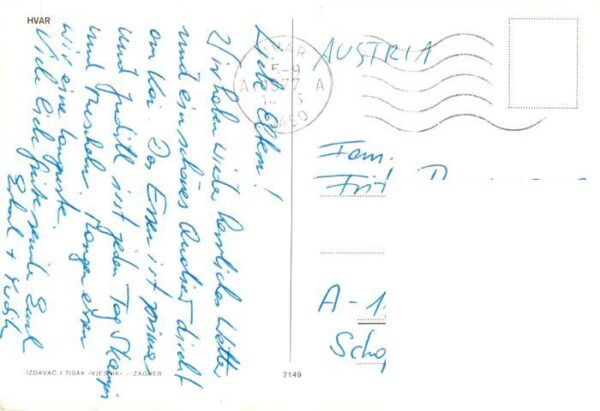 HVAR
Liebe Eltern!
Wir haben wieder herrliches Wetter
und ein schönes Quartier dicht
am Kai. Das Essen ist prima
und Judith isst jeden Tag Skampi
und Muscheln. Morgen essen
wir eine Languste.
Viele liebe Grüsse sendet Euch
HVAR
1977
AUSTRIA
Fam.
A-1
IZDAVAČ I TISAK «VJESNIK» - ZAGREB
7149